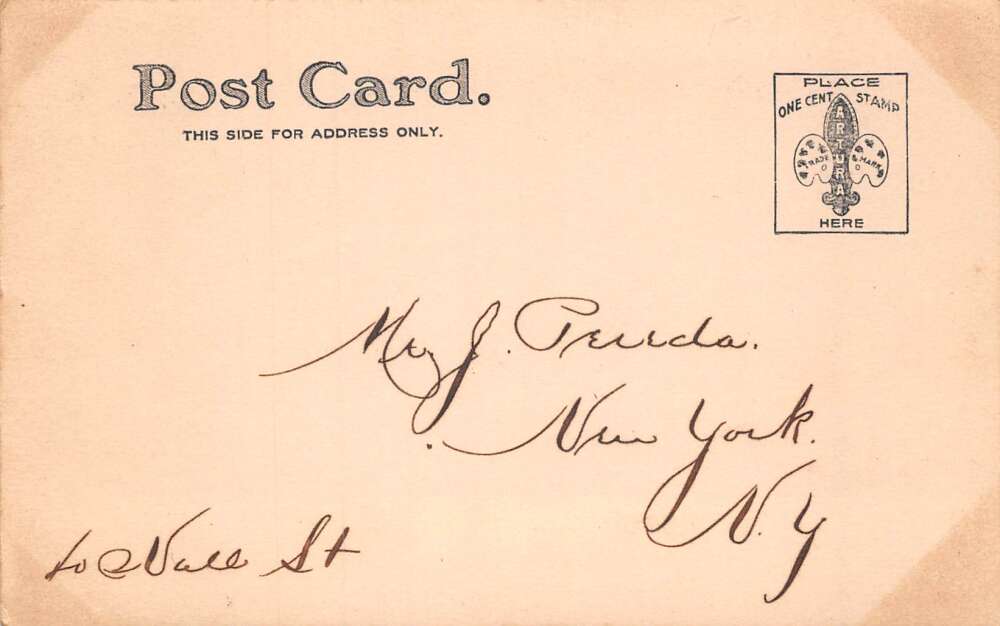 Post Card.
THIS SIDE FOR ADDRESS ONLY.
PLACE
ONE CENT STAMP
ARTURA
TRADE MARK
HERE
Mr J. Pereda.
New York.
N.Y
40 Wall St